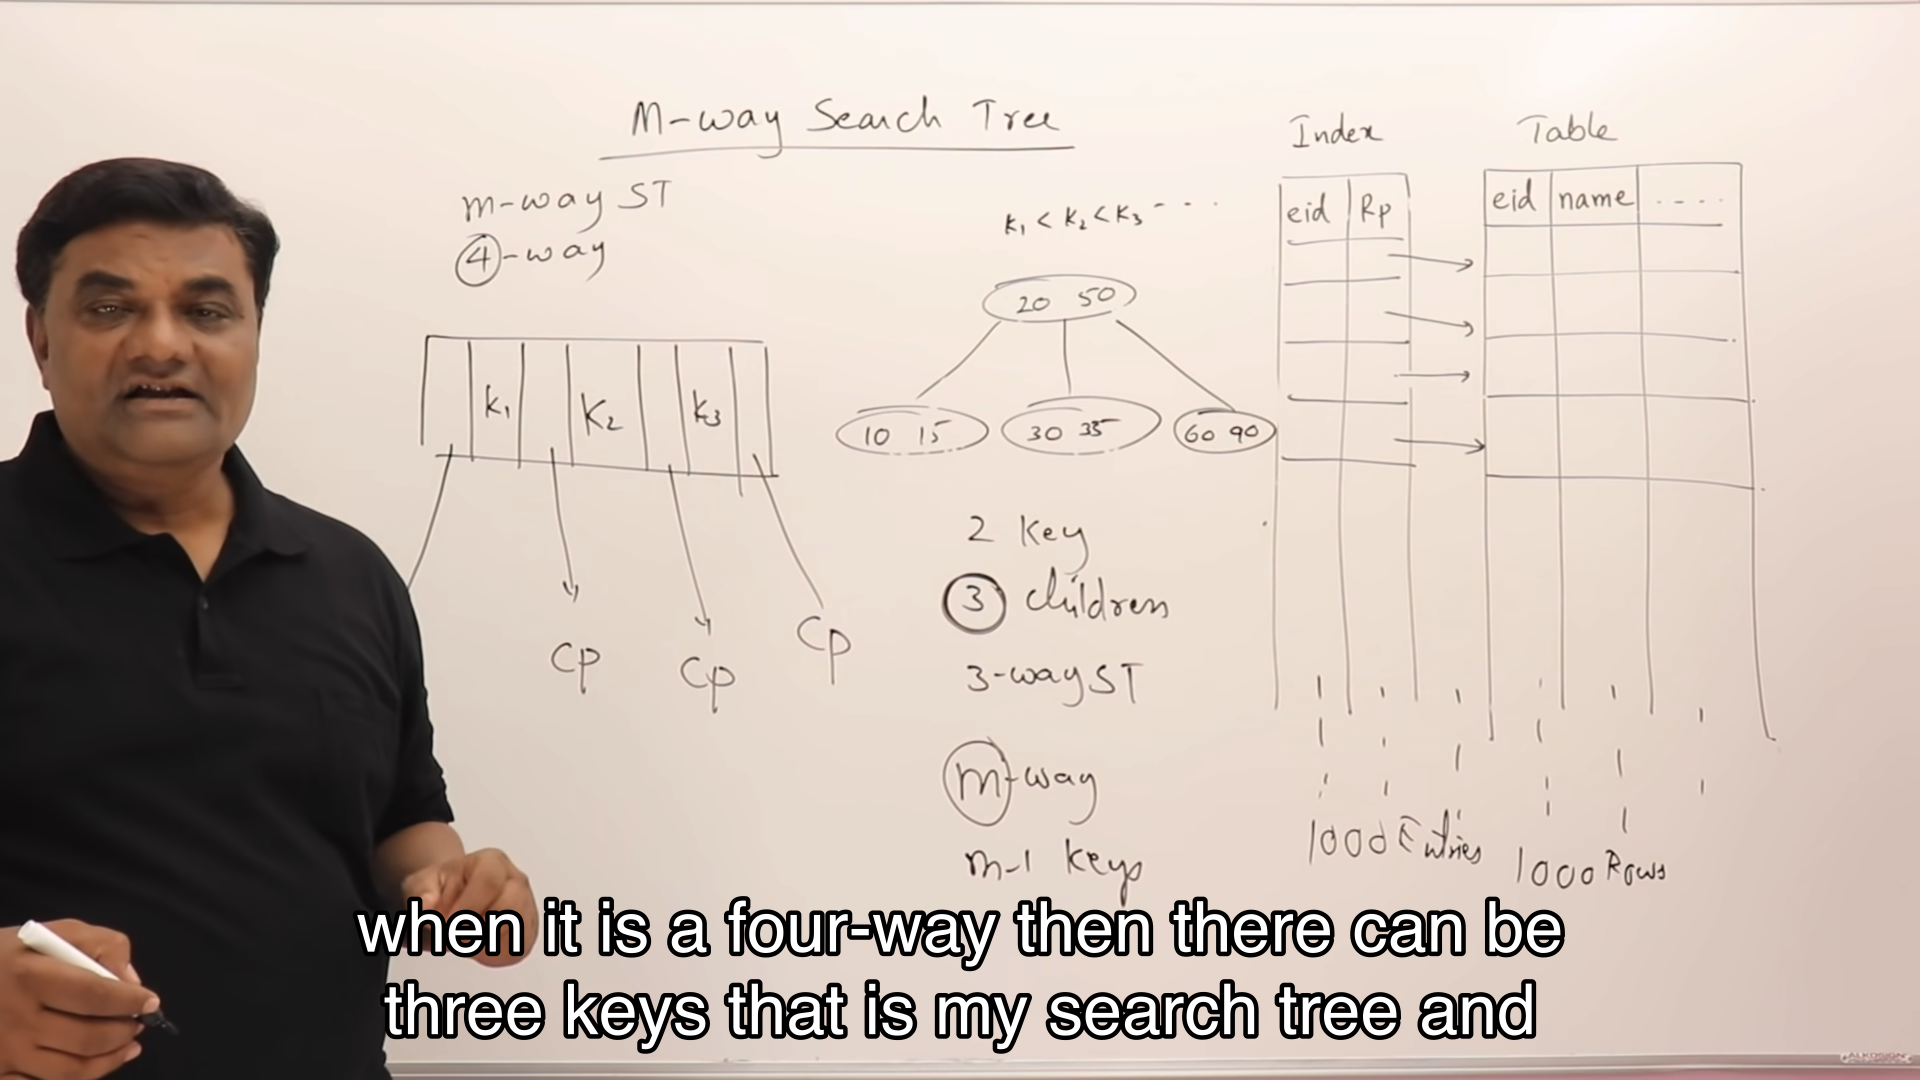 M-way Search Tree
m-way ST
4-way
K₁ K₂ K₃
CP CP CP
K₁ < K₂ < K₃ - - - -
20 50
10 15 30 35 60 90
2 Key
3 children
3-way ST
m-way
m-1 Keys
Index
eid Rp
1000 Entries
Table
eid name ....
1000 Rows
when it is a four-way then there can be
three keys that is my search tree and